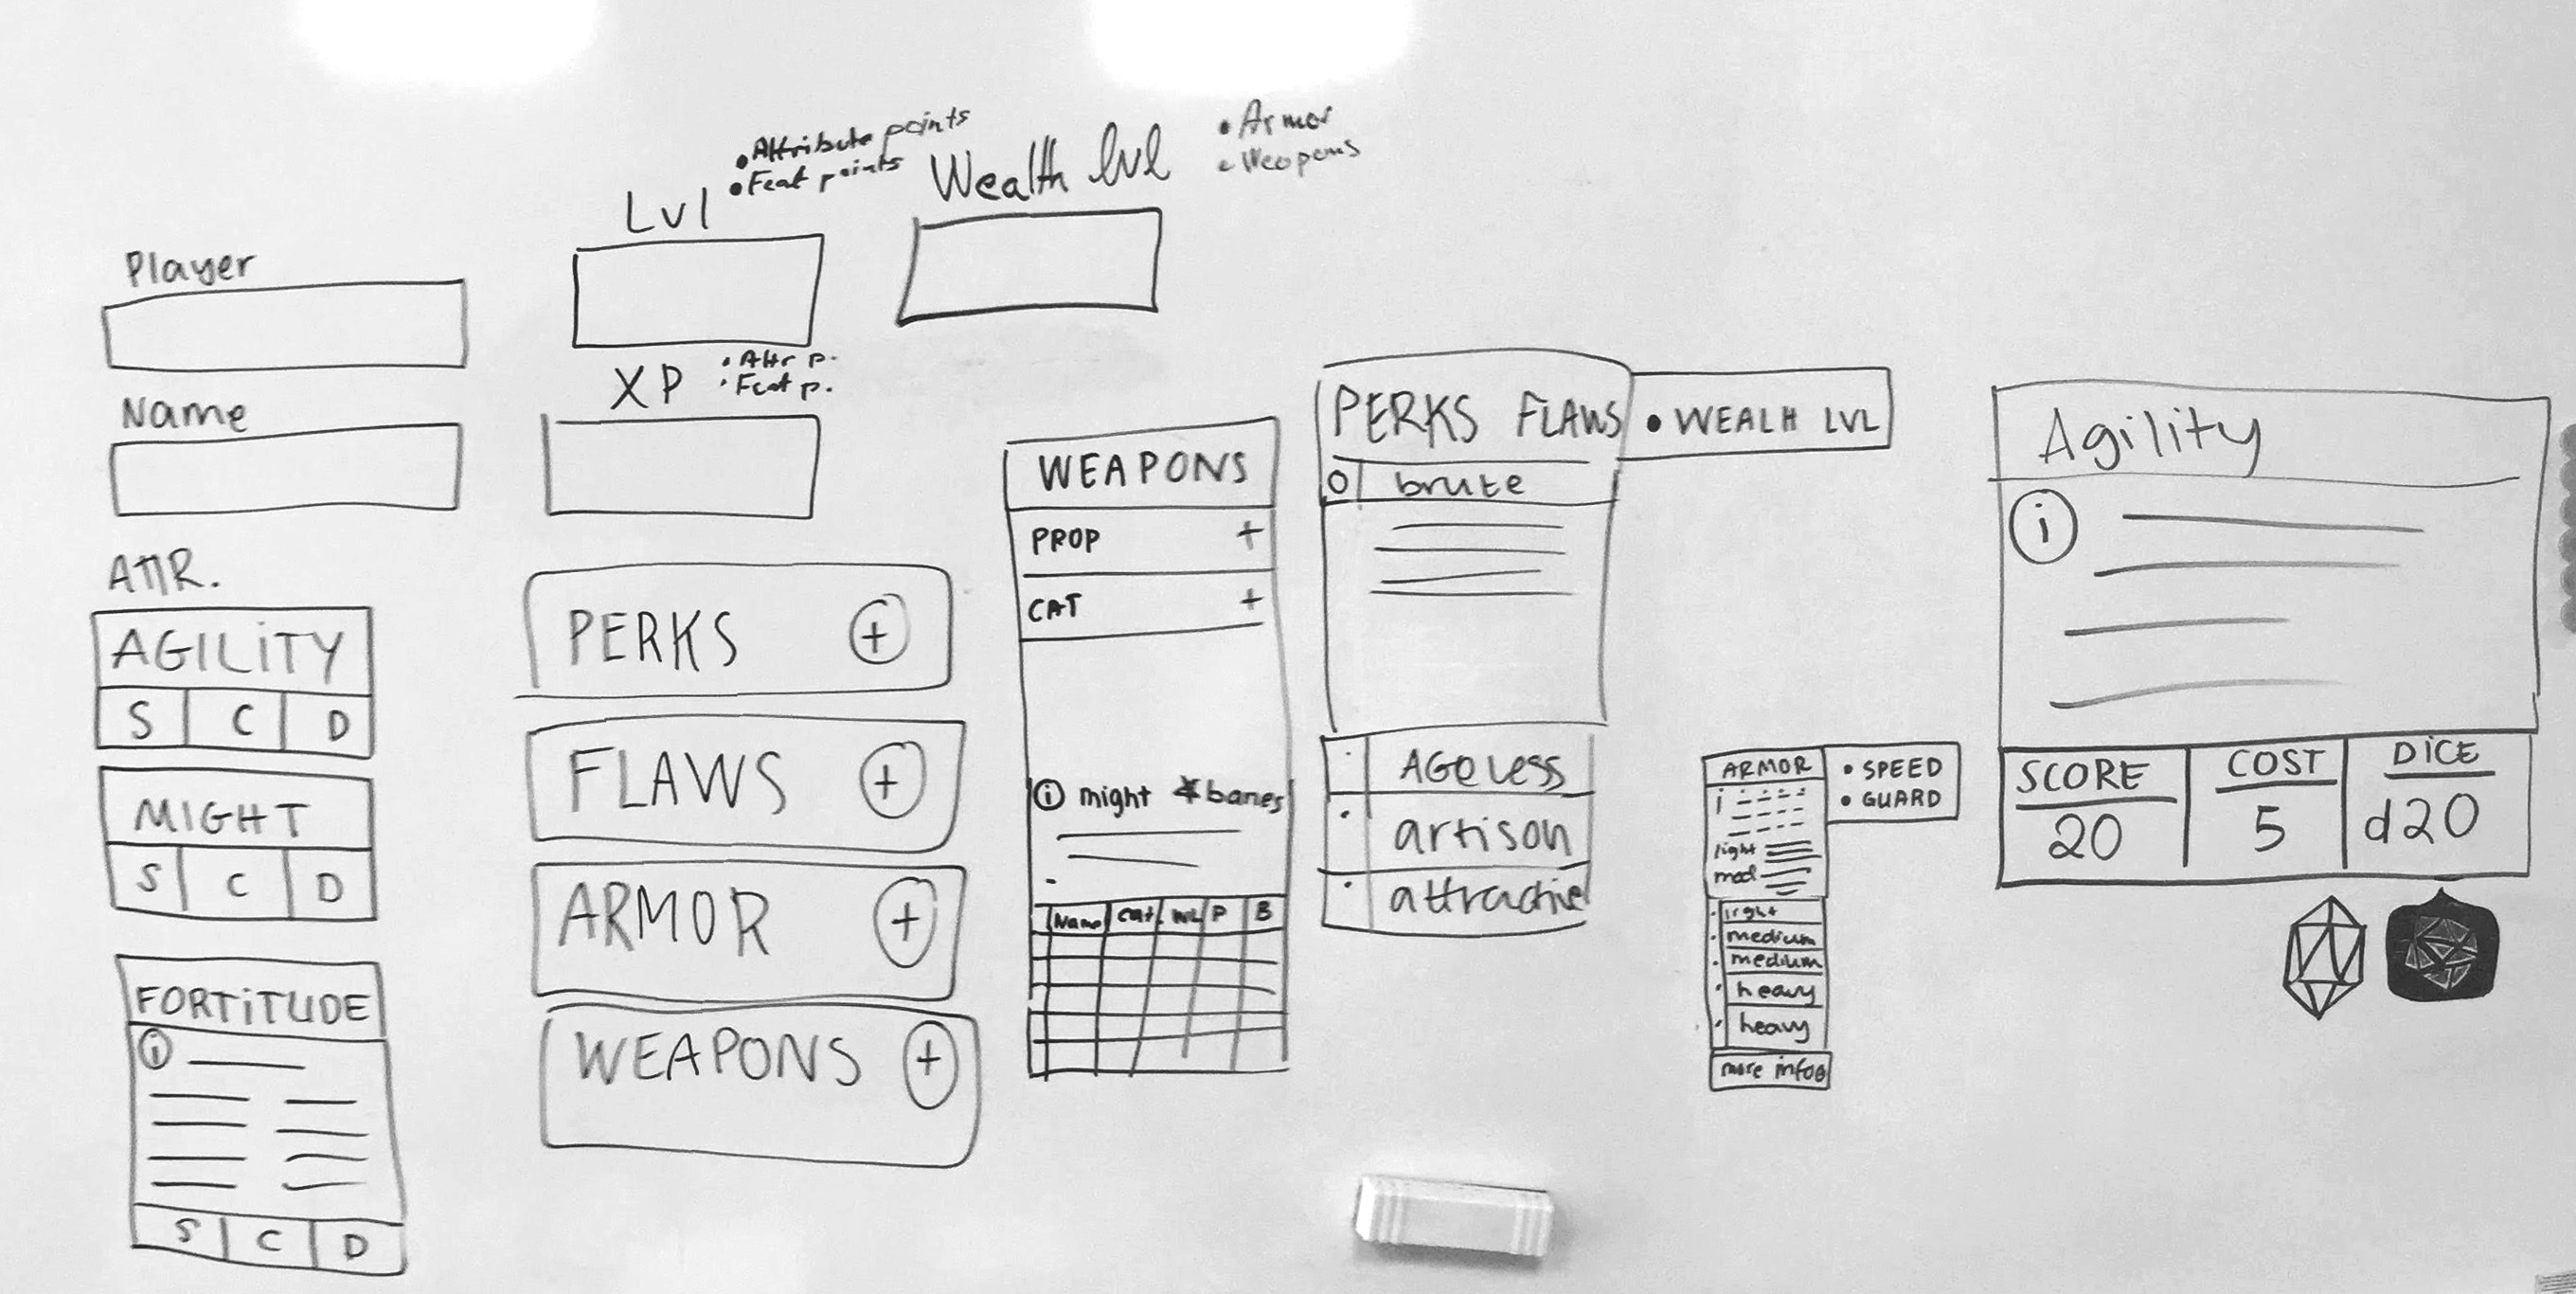 Player
Name
ATTR.
AGILITY
S C D
MIGHT
S C D
FORTITUDE
i
S C D
Lvl
• Attribute points
• Feat points
Wealth lvl
• Armor
• Weapons
XP
• Attr p.
• Feat p.
PERKS +
FLAWS +
ARMOR +
WEAPONS +
WEAPONS
PROP +
CAT +
i might * banes
Name Cat. WL P B
PERKS FLAWS
• WEALH LVL
O brute
AGeless
artison
attractive
ARMOR
• SPEED
• GUARD
i
light
med
light
medium
medium
heavy
heavy
more info
Agility
i
SCORE
20
COST
5
DICE
d20